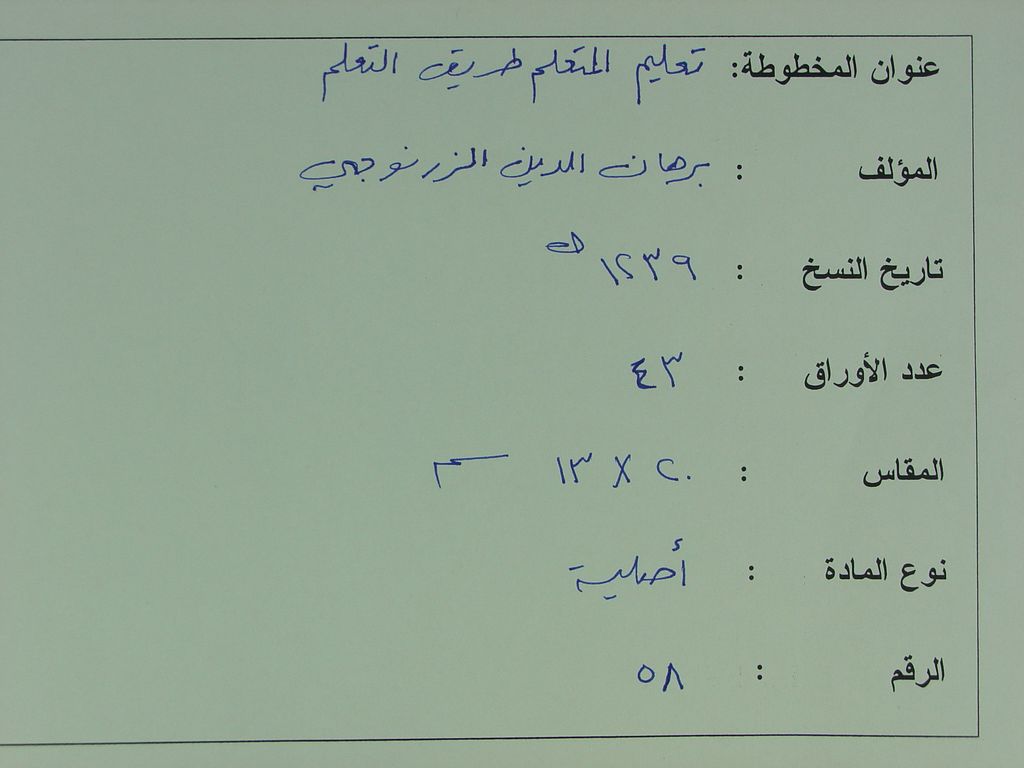 عنوان المخطوطة: تعليم المتعلم طريق التعلم
المؤلف : برهان الدين الزرنوجي
تاريخ النسخ : ١٢٣٩ هـ
عدد الأوراق : ٤٣
المقاس : ٢٠ X ١٣ سم
نوع المادة : أصلية
الرقم : ٥٨